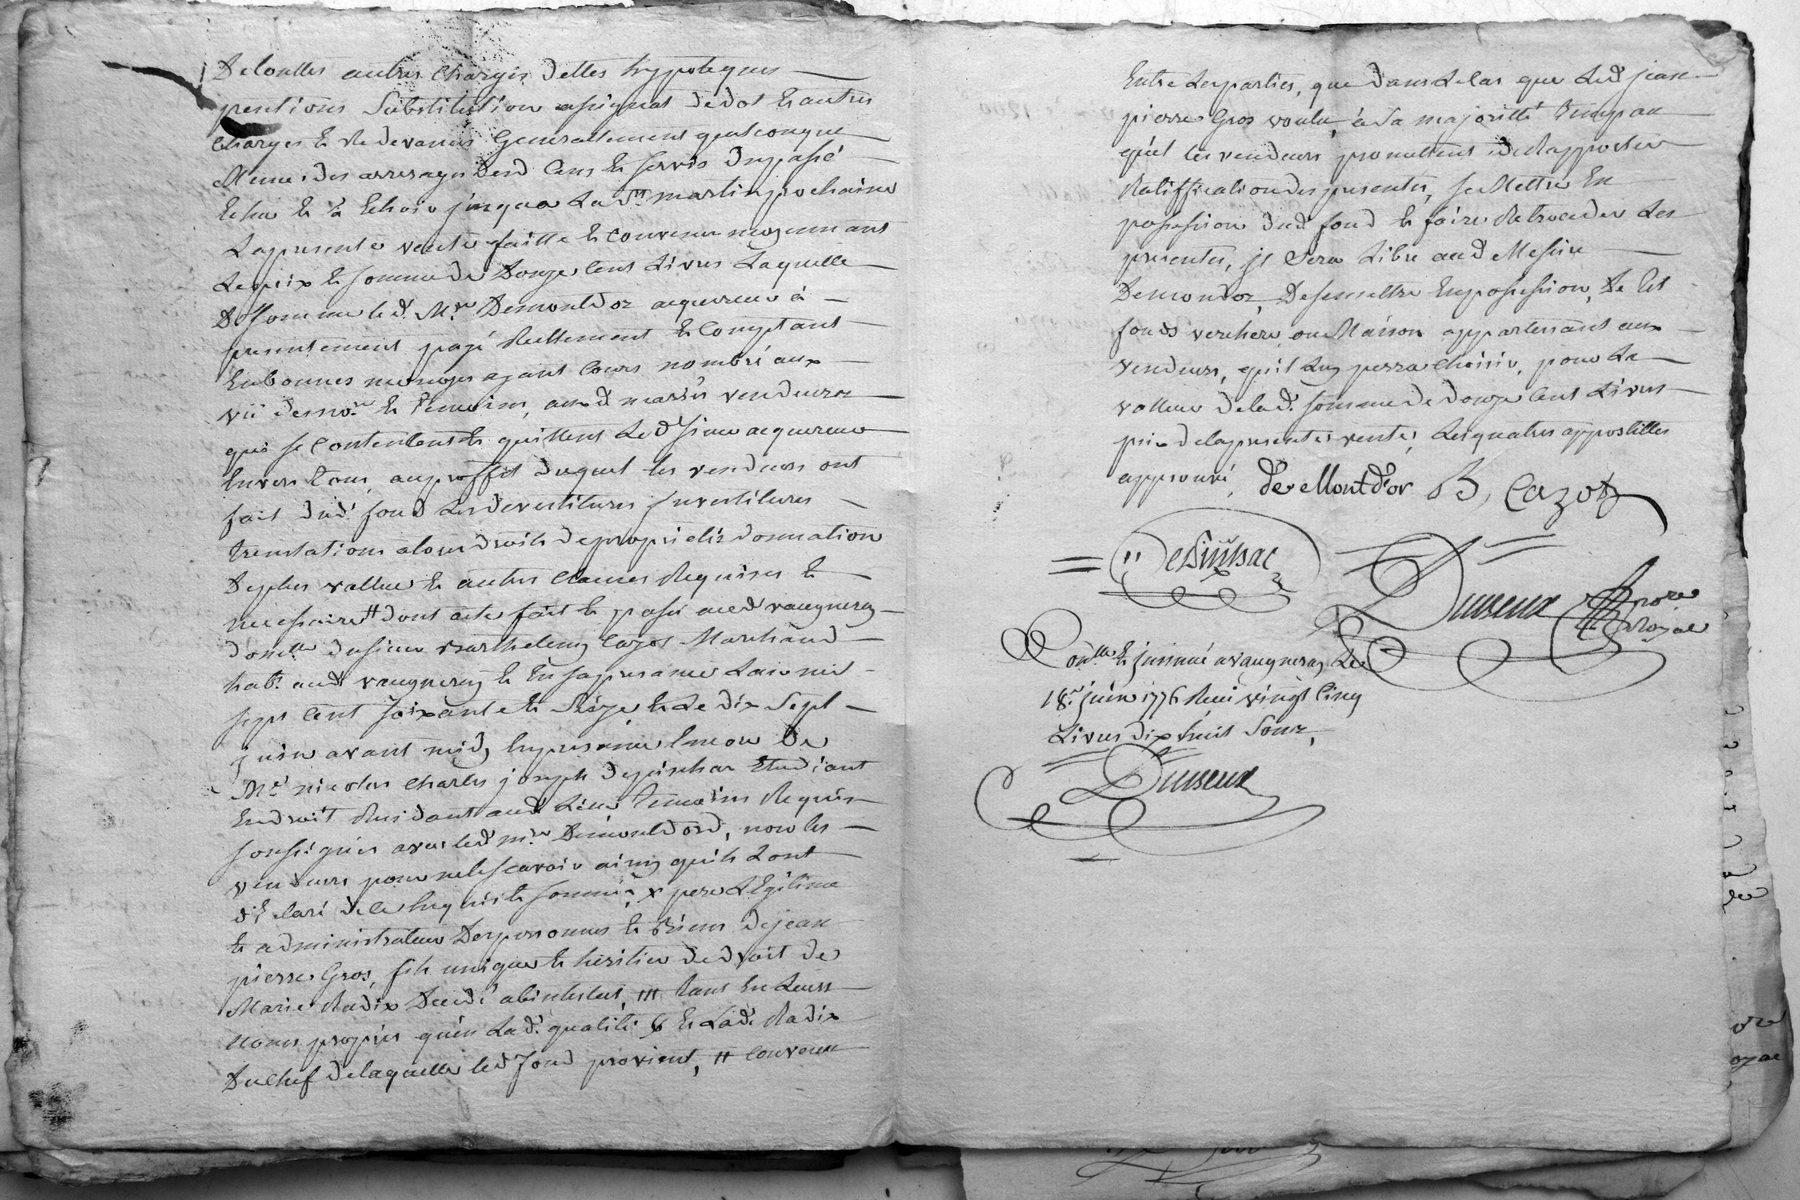 De touttes autres charges dettes hypoteques
pentions Substitution assignat de dot et autres
charges et Redevances Generallement quelconque
Meme des arrerages Desd. Cens et servis du passé
Echu et à Echoir jusqua La St martin prochaine
La presente vente faitte et convenue moyennant
Le prix et somme de Douze Cent Livres Laquelle
D. somme led. Mre. Demontd'or acquereur à
presentement payé Reellement et Comptant
En bonnes monoyes ayant Cours nombré aux
vû desno.res et temoins, auxd. mariés vendeurs
qui se Contentent et quittent Led. Sieur acquereur
Envers tous, au proffit duquel les vendeurs ont
fait dud. fond Les devestitures Investitures
translations de leurs droits de proprieté donnation
De plus vallue et autres clauses Requises et
necessaire # dont acte fait et passé aud. vaugneray
domille. du sieur Barthelemy Cazot Marchand
habt. aud. vaugneray et En sa presence L'an mil
sept Cent soixante et Seize et Le dix Sept
juin avant midy En presence Encore De
Mr. nicolas charles joseph
Etudiant
En droit Residant aud. Lieu, temoins Requis
soussignés avec led. mre. Demontdord, non les
vendeurs pour ne le scavoir ainsy quils L'ont
déclaré de ce Enquis et sommés, x pere Légitime
et administrateur Des personnes et Biens de jean
pierre Gros, fils unique et héritier de droit de
Marie Radix Décédé abintestat, ### tant En Leurs
noms propres qu'en Lad. qualité & et Lad. Radix
Du chef de laquelle led. fond provient, # convenu
Entre Les parties, que dans Le Cas que Led. jean
pierre Gros voulu, à sa majoritté
qu'el les vendeurs promettent de Rapporter
Ratiffication des presentes, se Mettre En
possession dud. fond et faire Retroceder Les
presentes, il sera Libre aud. Messire
Demondor De se mettre En possession, De tel
fonds verchere ou Maison appartenant aux
vendeurs, quil luy perra choisir, pour La
valleur de lad. somme de douze Cent Livres
prix de la presente vente, Les quatres appostilles
approuvé, de Montd'or B, Cazot
Duseux nore Royal
Conlle. et jnsinué a vaugneray Le
18.e juin 1776 Reçu vingt Cinq
Livres dix huit Sous,
Duseux